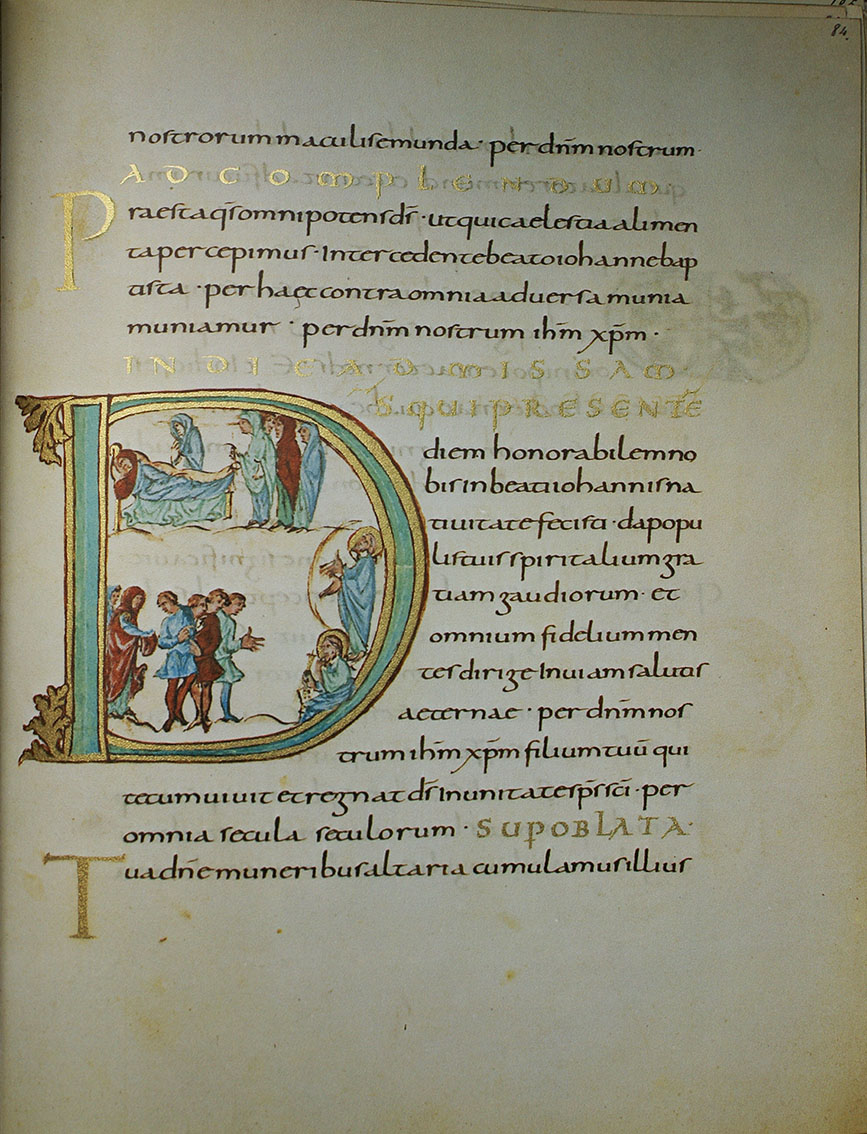 84.
nostrorum maculis emunda · per dnm nostrum ·
AD COMPLENDUM
Praesta qs omnipotens ds · ut qui caelestia alimen
ta percepimus · Intercedente beato iohanne bap
tista · per haec contra omnia aduersa munia
muniamur · per dnm nostrum ihm xpm ·
IN DIC AD MISSAM
DS QUI PRESENTE
diem honorabilem no
bis in beati iohannis na
tiuitate fecisti · da popu
lis tuis spiritalium gra
tiam gaudiorum · et
omnium fidelium men
tes dirige In uiam salutis
aeternae · per dnm nos
trum ihm xpm filium tuū qui
tecum uiuit et regnat ds In unitate sps sci · per
omnia secula seculorum · SUP OBLATA ·
Tua dne muneribus altaria cumulamus illius